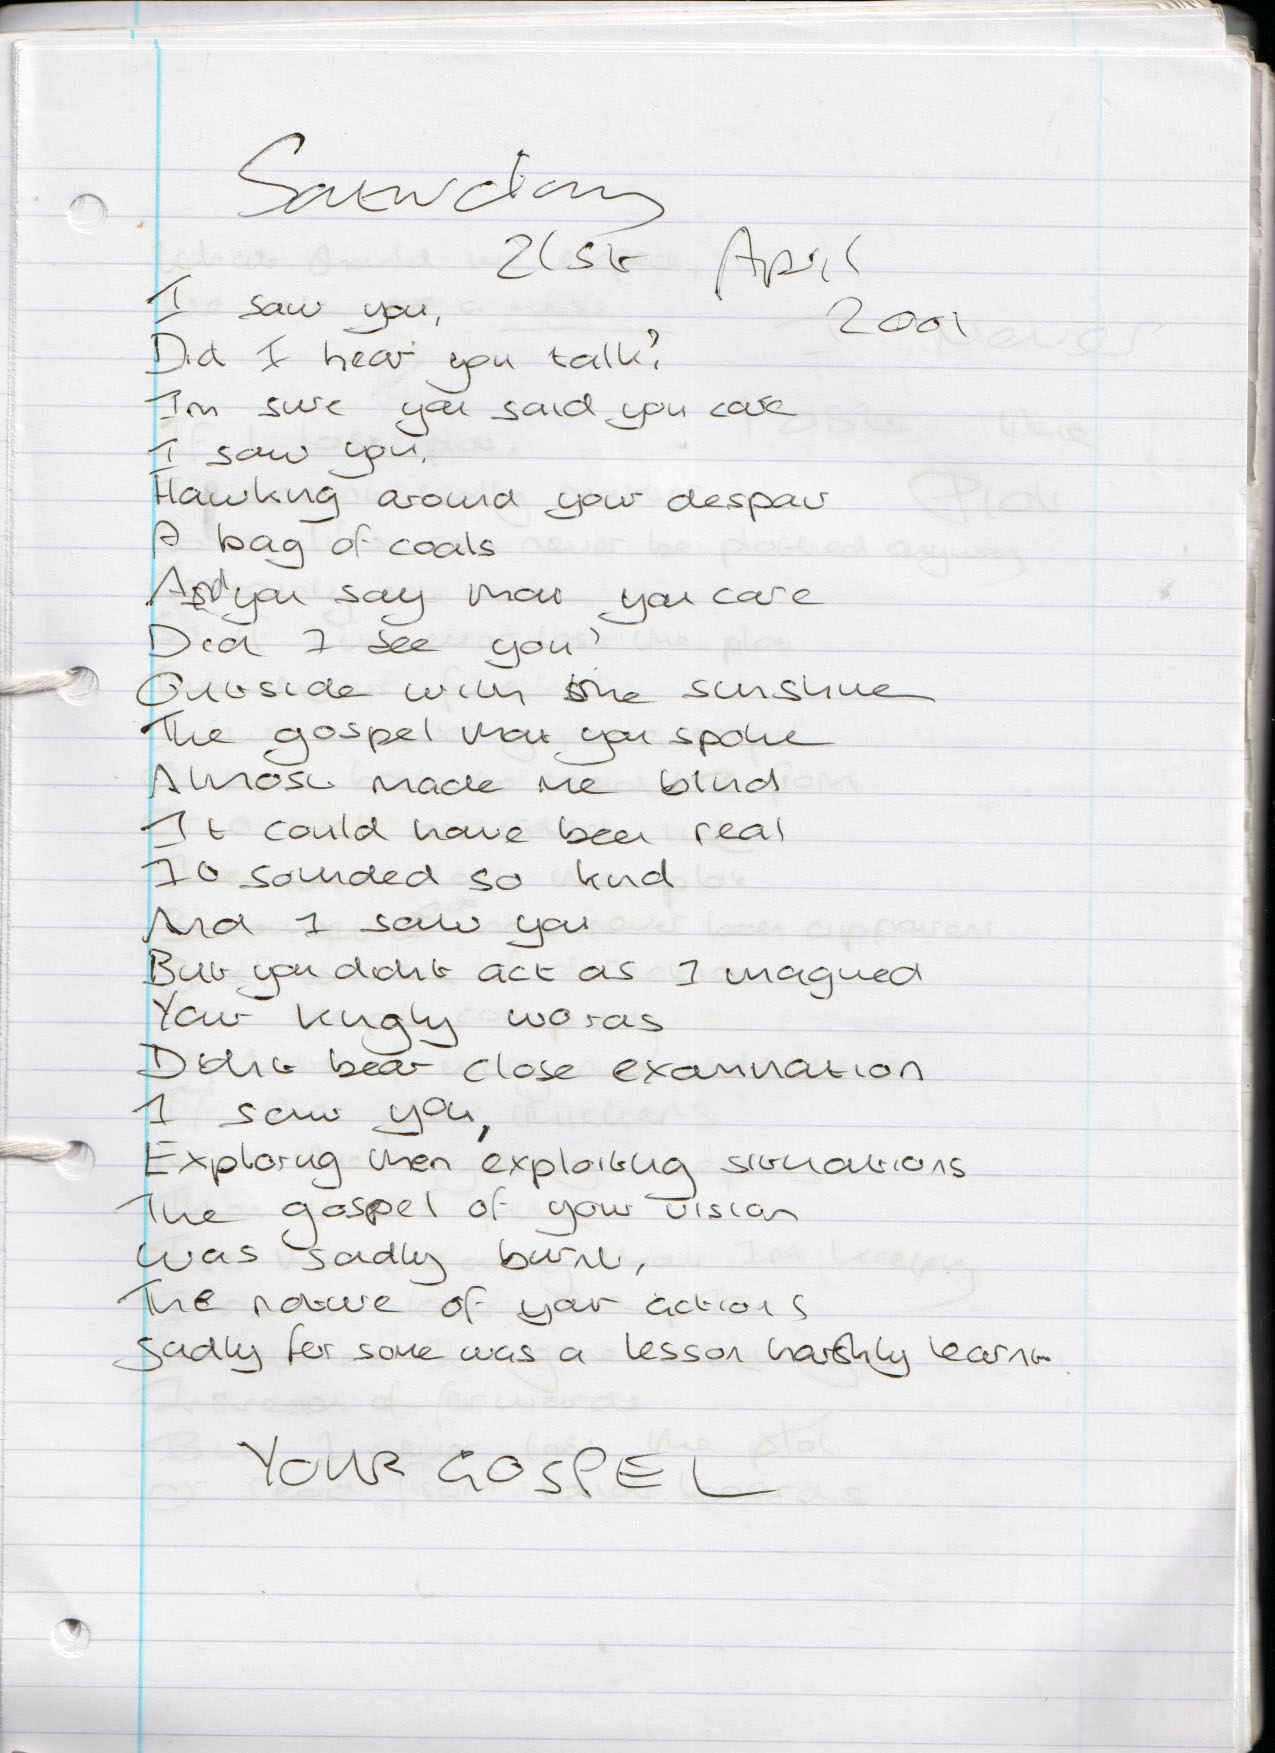 Saturday
21st April
2001
I saw you,
Did I hear you talk?
Im sure you said you care
I saw you,
Hawking around your despair
A bag of coals
And you say that you care
Did I see you?
Outside with the sunshine
The gospel that you spoke
Almost made me blind
It could have been real
It sounded so kind
And I saw you
But you didnt act as I imagined
Your kingly words
Didnt bear close examination
I saw you,
Exploring then exploiting situations
The gospel of your vision
Was sadly burnt,
The nature of your actions
Sadly for some was a lesson harshly learnt
YOUR GOSPEL